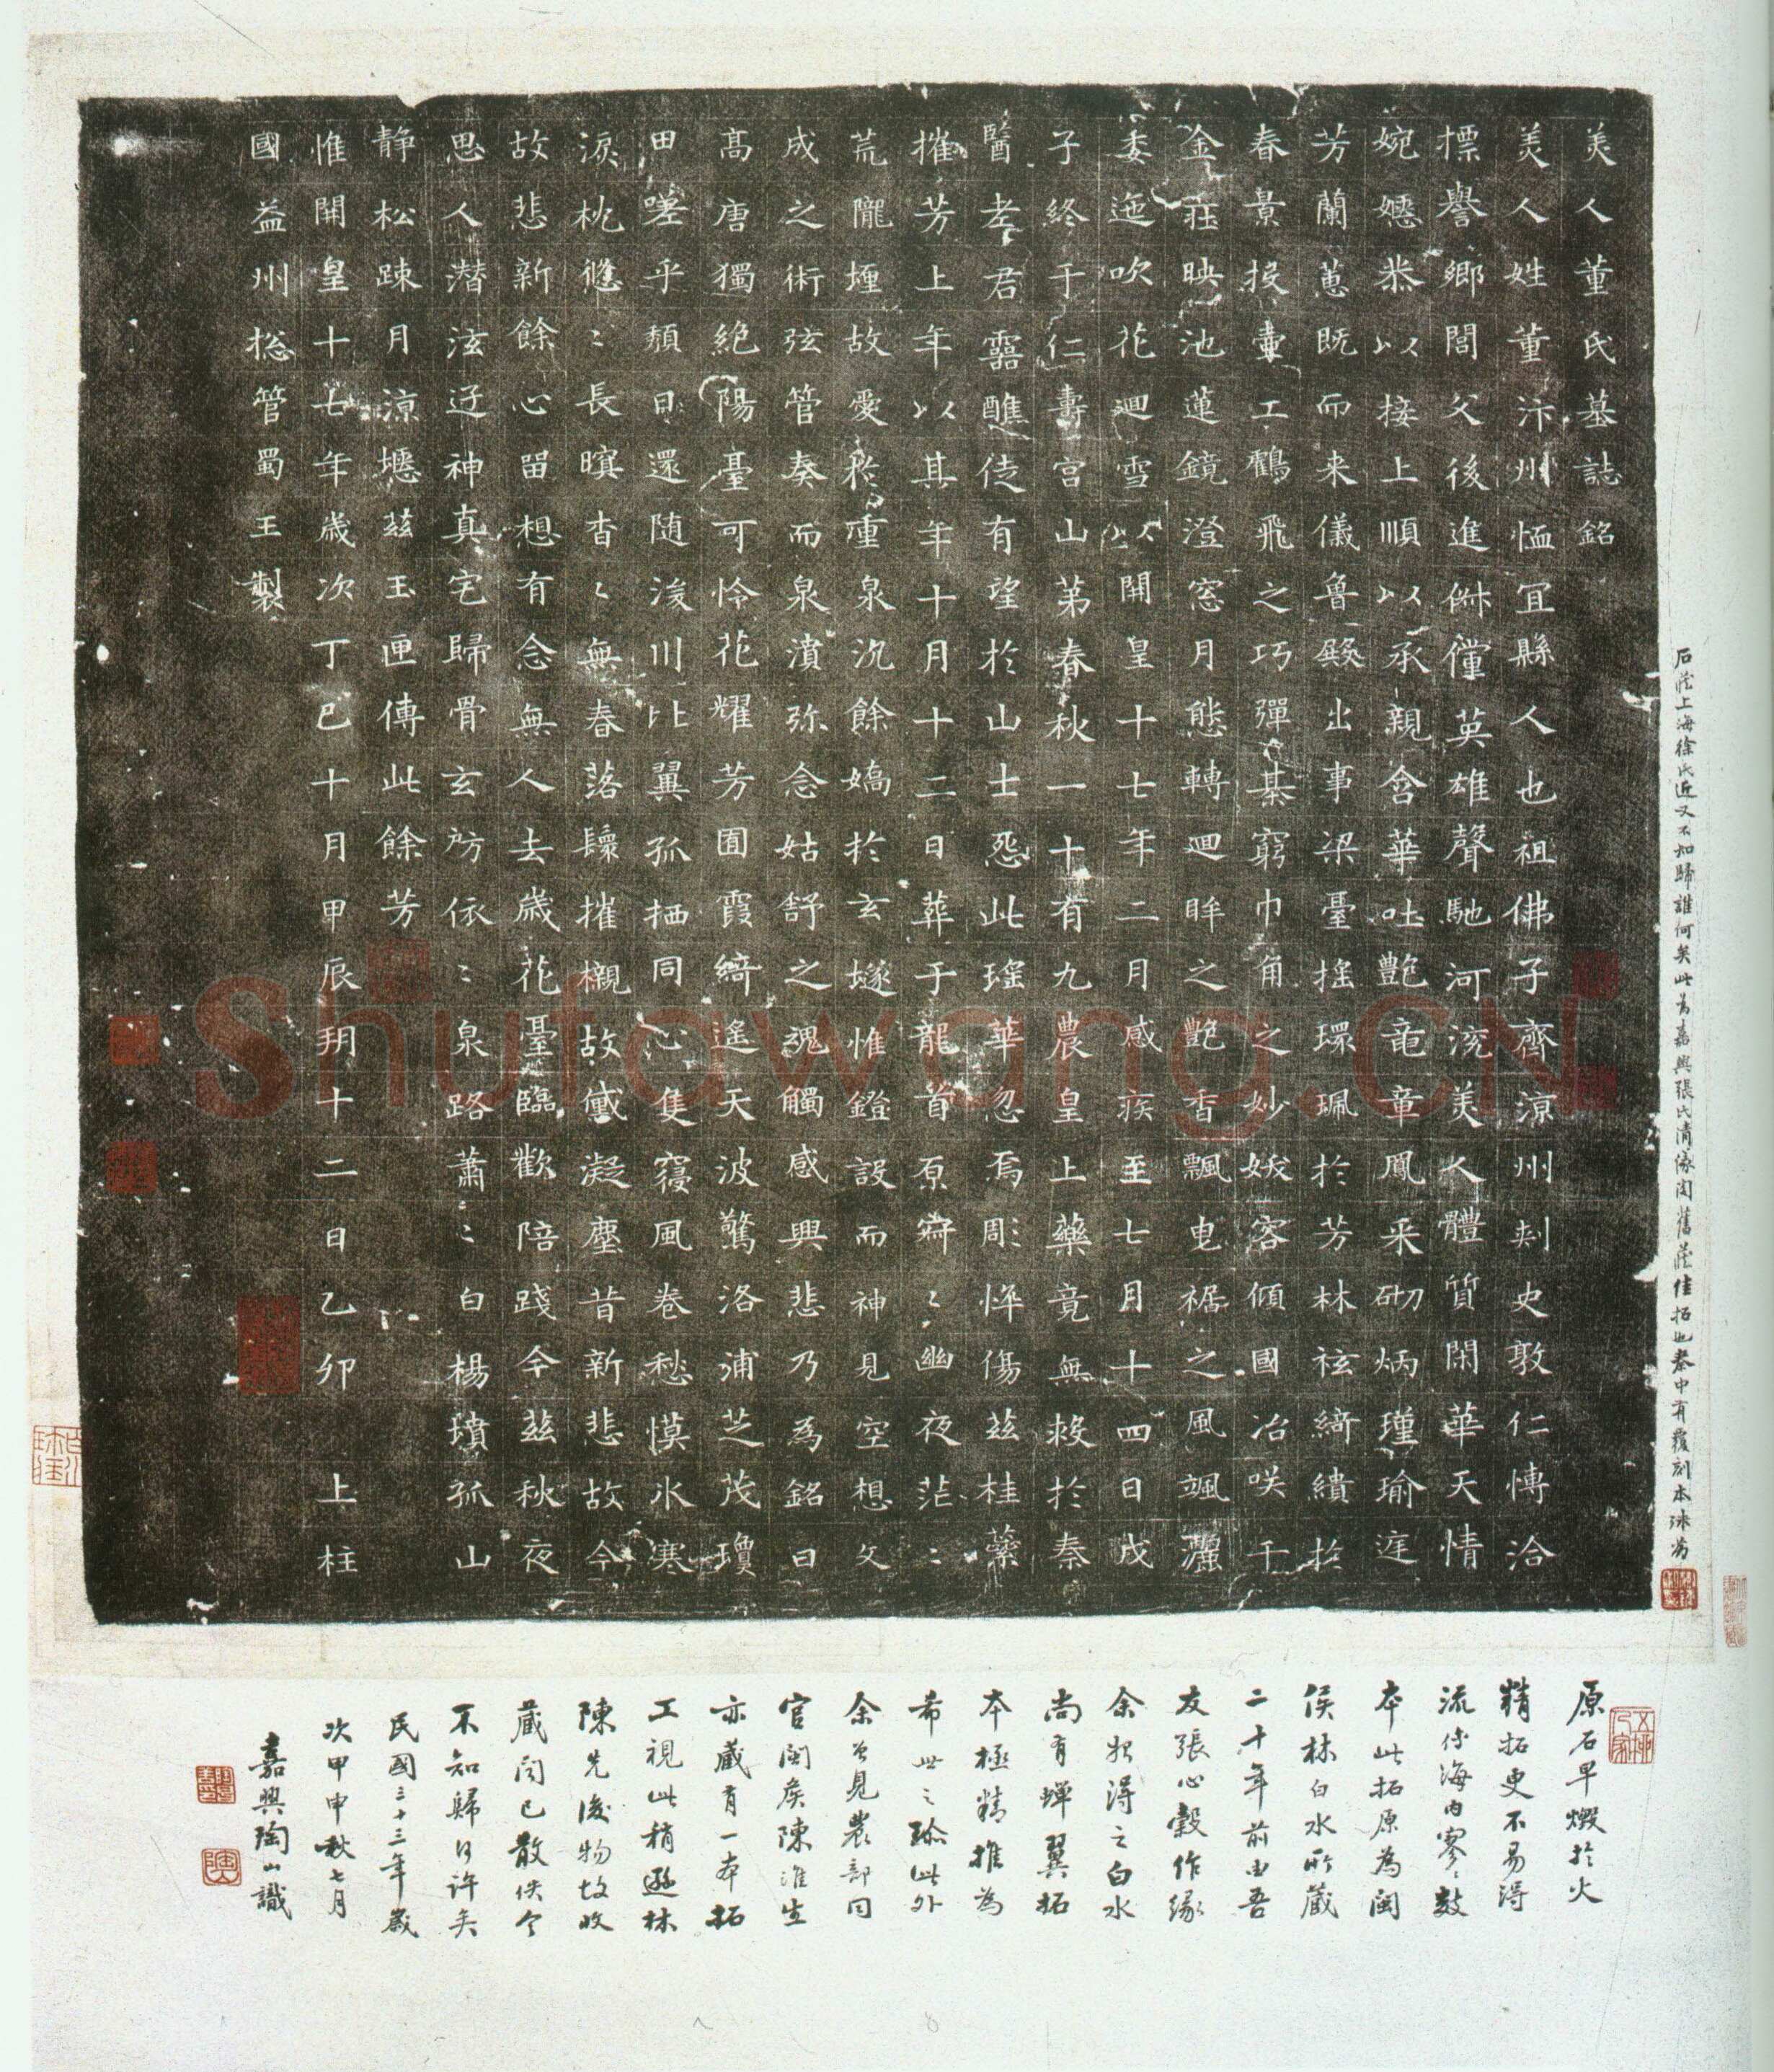 美人董氏墓誌銘
美人姓董汴州恤宜縣人也祖佛子齊涼州刺史敦仁愽洽
摽譽鄉閭父後進俶儻英雄聲馳河渷美人體質閑華天情
婉嫕恭以接上順以承親含華吐艷竜章鳳采砌炳瑾瑜庭
芳蘭蕙既而来儀魯殿出事梁臺搖環珮於芳林袨綺繢於
春景投壷工鶴飛之巧彈棊窮巾角之妙妖容傾國冶咲千
金莊映池蓮鏡澄窓月態轉廻眸之艷香飄曳裾之風颯灑
委迤吹花廻雪以開皇十七年二月感疾至七月十四日戊
子終于仁壽宮山第春秋一十有九農皇上藥竟無救於秦
醫老君靈醮徒有望於山士怨此瑤華忽焉彫悴傷茲桂蘂
摧芳上年以其年十月十二日葬于龍首原㝛〻幽夜茫〻
荒隴埋故愛於重泉沉餘嬌於玄墜惟鐙設而神見空想文
成之術弦管奏而泉濆弥念姑舒之魂觸感興悲乃為銘曰
髙唐獨絶陽臺可怜花耀芳囿霞綺遙天波驚洛浦芝茂瓊
田嗟乎頽日還随浚川比翼孤栖同心隻寢風卷愁慔氷寒
淚枕悠〻長暝杳〻無春落鬟摧櫬故黛凝塵昔新悲故今
故悲新餘心留想有念無人去歲花臺臨歡陪踐今茲秋夜
思人潜泫迂神真宅歸骨玄房依〻泉路蕭〻白楊墳孤山
静松踈月涼瘞茲玉匣傳此餘芳
惟開皇十七年歲次丁巳十月甲辰玥十二日乙卯 上柱
國益州捴管蜀王製
石在上海徐氏近又不知歸誰何矣此為嘉興張氏清儀閣舊藏佳拓也秦中有覆刻本殊劣
原石早燬於火
精拓更不易得
流傳海內寥〻數
本此拓原為閩
侯林白水所藏
二十年前由吾
友張心穀作緣
余始得之白水
尚有蟬翼拓
本極精推為
希世之珍此外
余曾見農部同
官閩矦陳淮生
亦藏有一本拓
工視此稍遜林
陳先後物故收
藏聞已散佚今
不知歸何許矣
民國三十三年歲
次甲申秋七月
嘉興陶山識
shufawang.CN